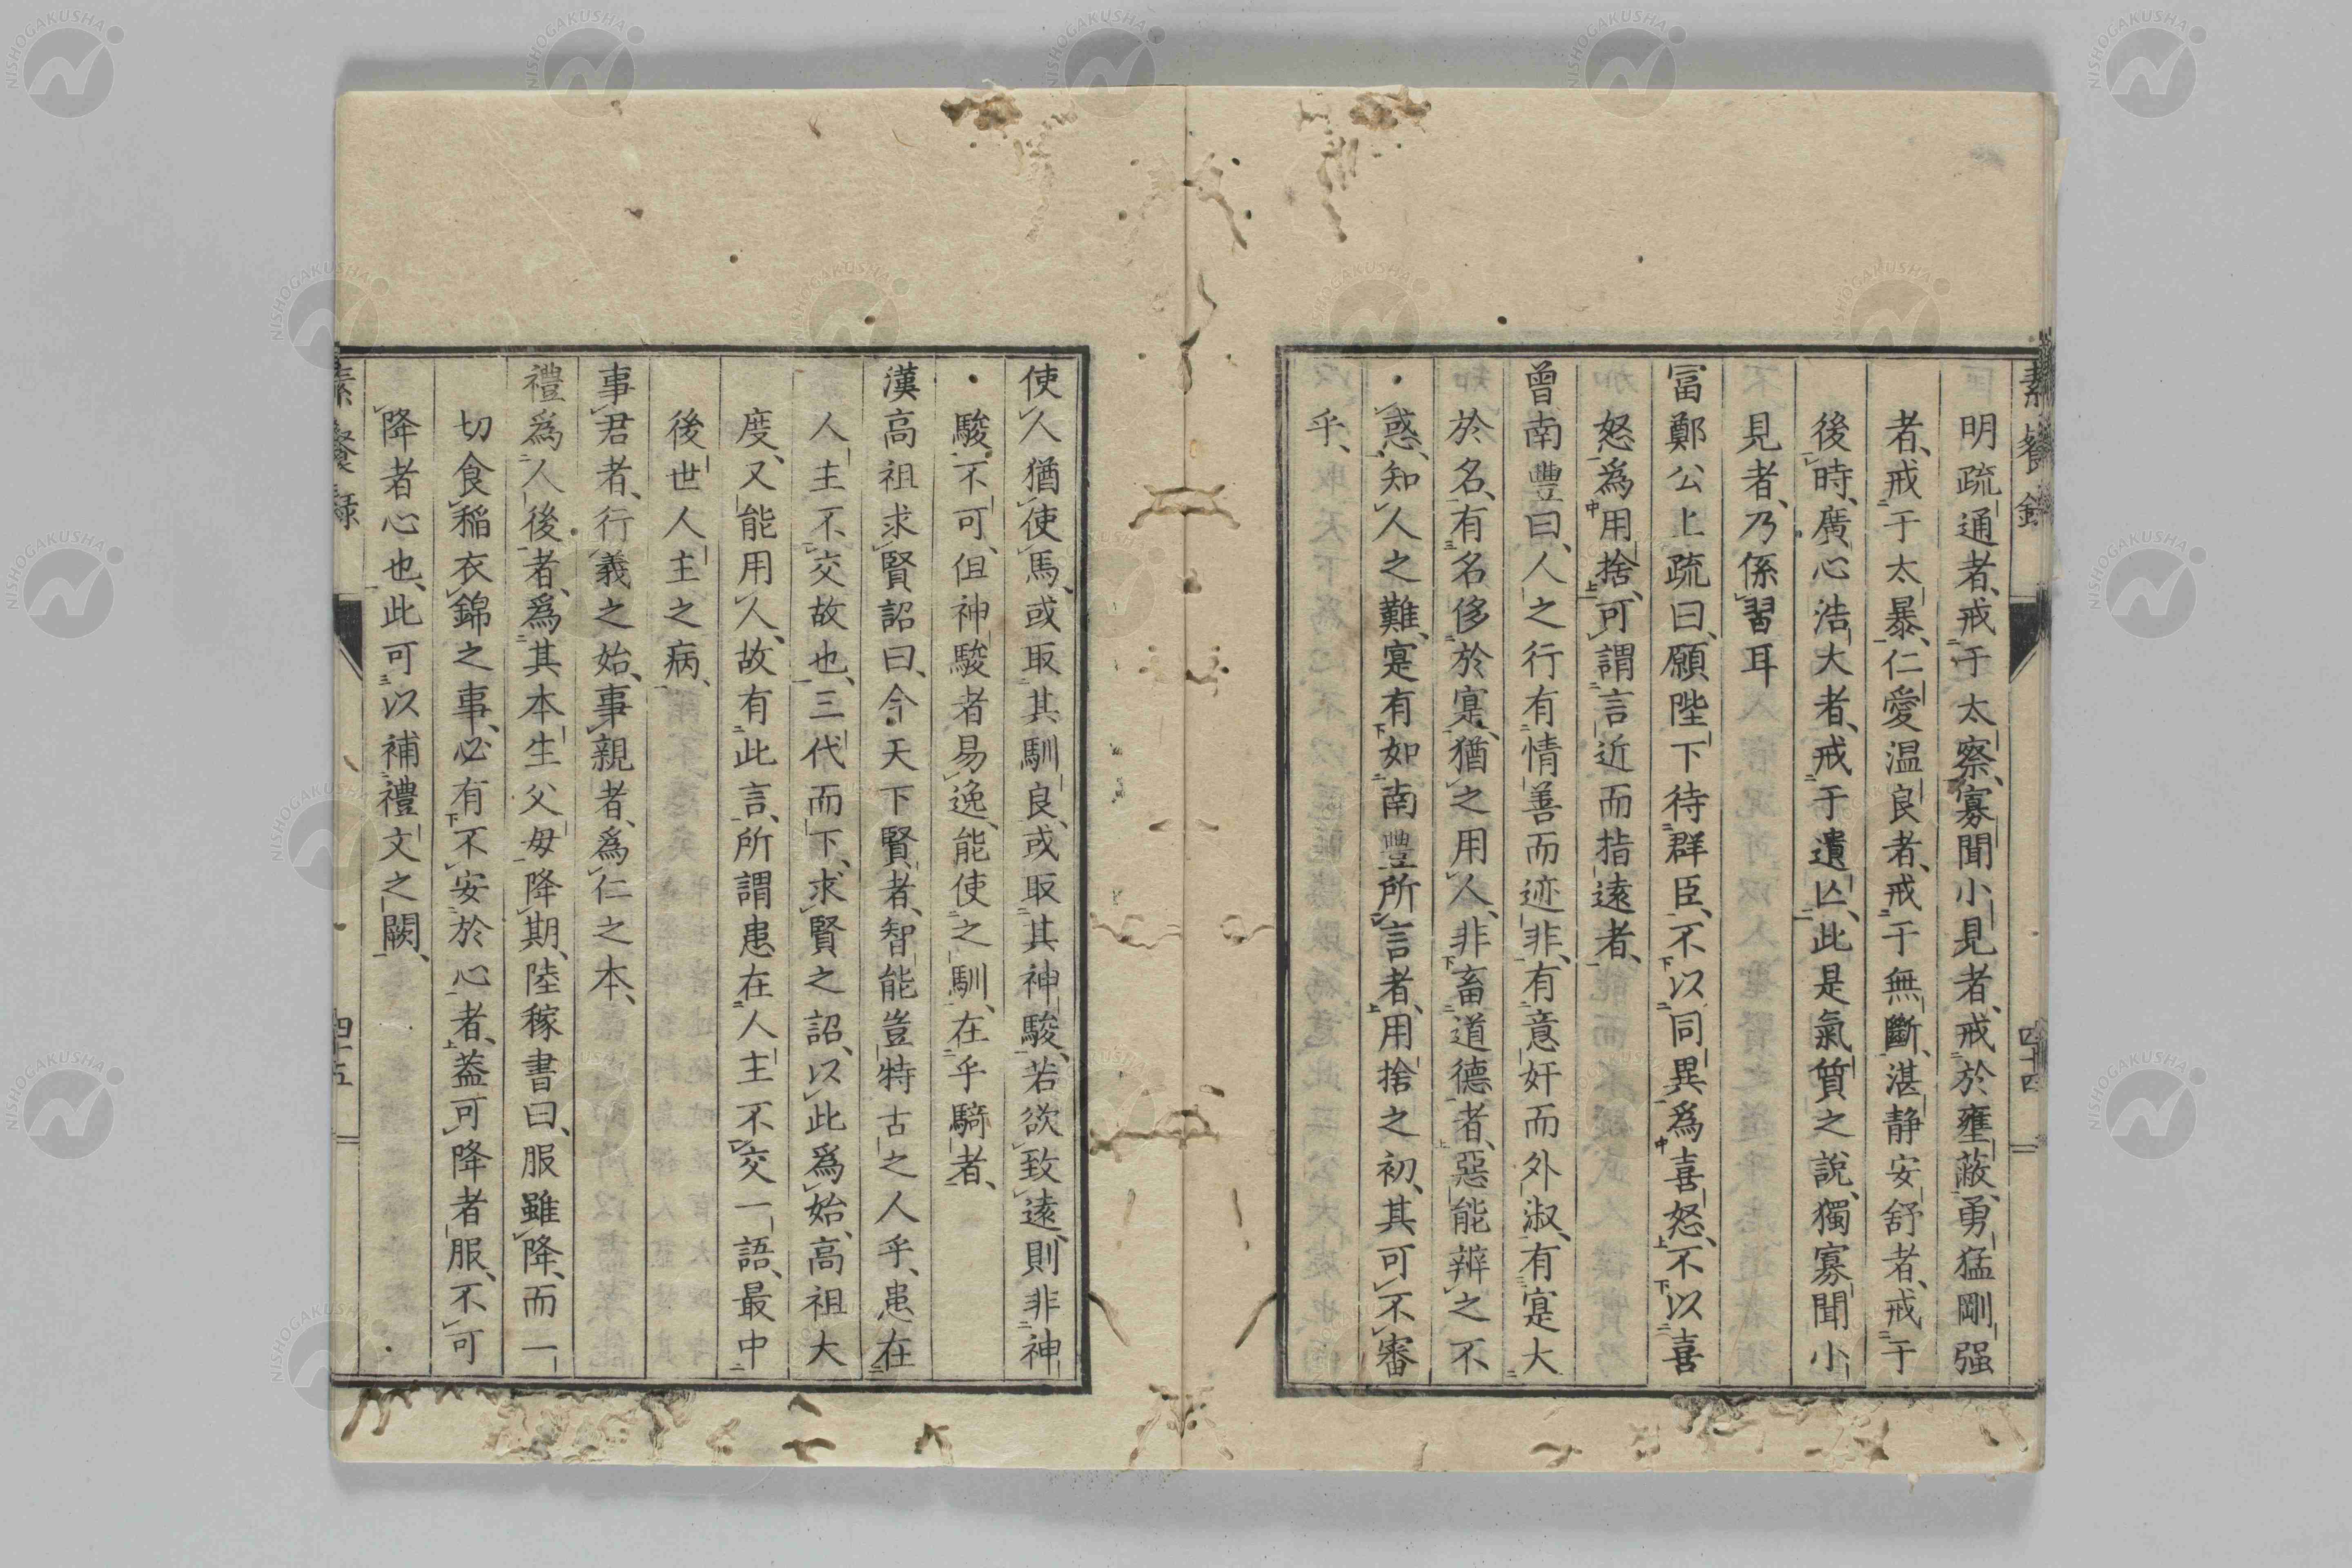 素餐錄
四十四
明疏通者、戒于太察、寡聞小見者、戒於壅蔽、勇猛剛强
者、戒于太暴、仁愛温良者、戒于無斷、湛静安舒者、戒于
後時、廣心浩大者、戒于遺亾、此是氣質之說、獨寡聞小
見者、乃係習耳
冨鄭公上疏曰、願陛下待群臣、不以同異爲喜怒、不以喜
怒爲用捨、可謂言近而指遠者、
曾南豐曰、人之行有情善而迹非、有意奸而外淑、有寔大
於名、有名侈於寔、猶之用人、非畜道德者、惡能辨之不
惑、知人之難、寔有如南豐所言者、用捨之初、其可不審
乎、
使人猶使馬、或取其馴良、或取其神駿、若欲致遠、則非神
駿不可、但神駿者易逸、能使之馴、在乎騎者、
漢高祖求賢詔曰、今天下賢者、智能豈特古之人乎、患在
人主不交故也、三代而下、求賢之詔、以此爲始、高祖大
度、又能用人、故有此言、所謂患在人主不交一語、最中
後世人主之病、
事君者、行義之始、事親者、爲仁之本、
禮爲人後者、爲其本生父母降期、陸稼書曰、服雖降、而一
切食稲衣錦之事、必有不安於心者、葢可降者服、不可
降者心也、此可以補禮文之闕、
素餐録
四十五